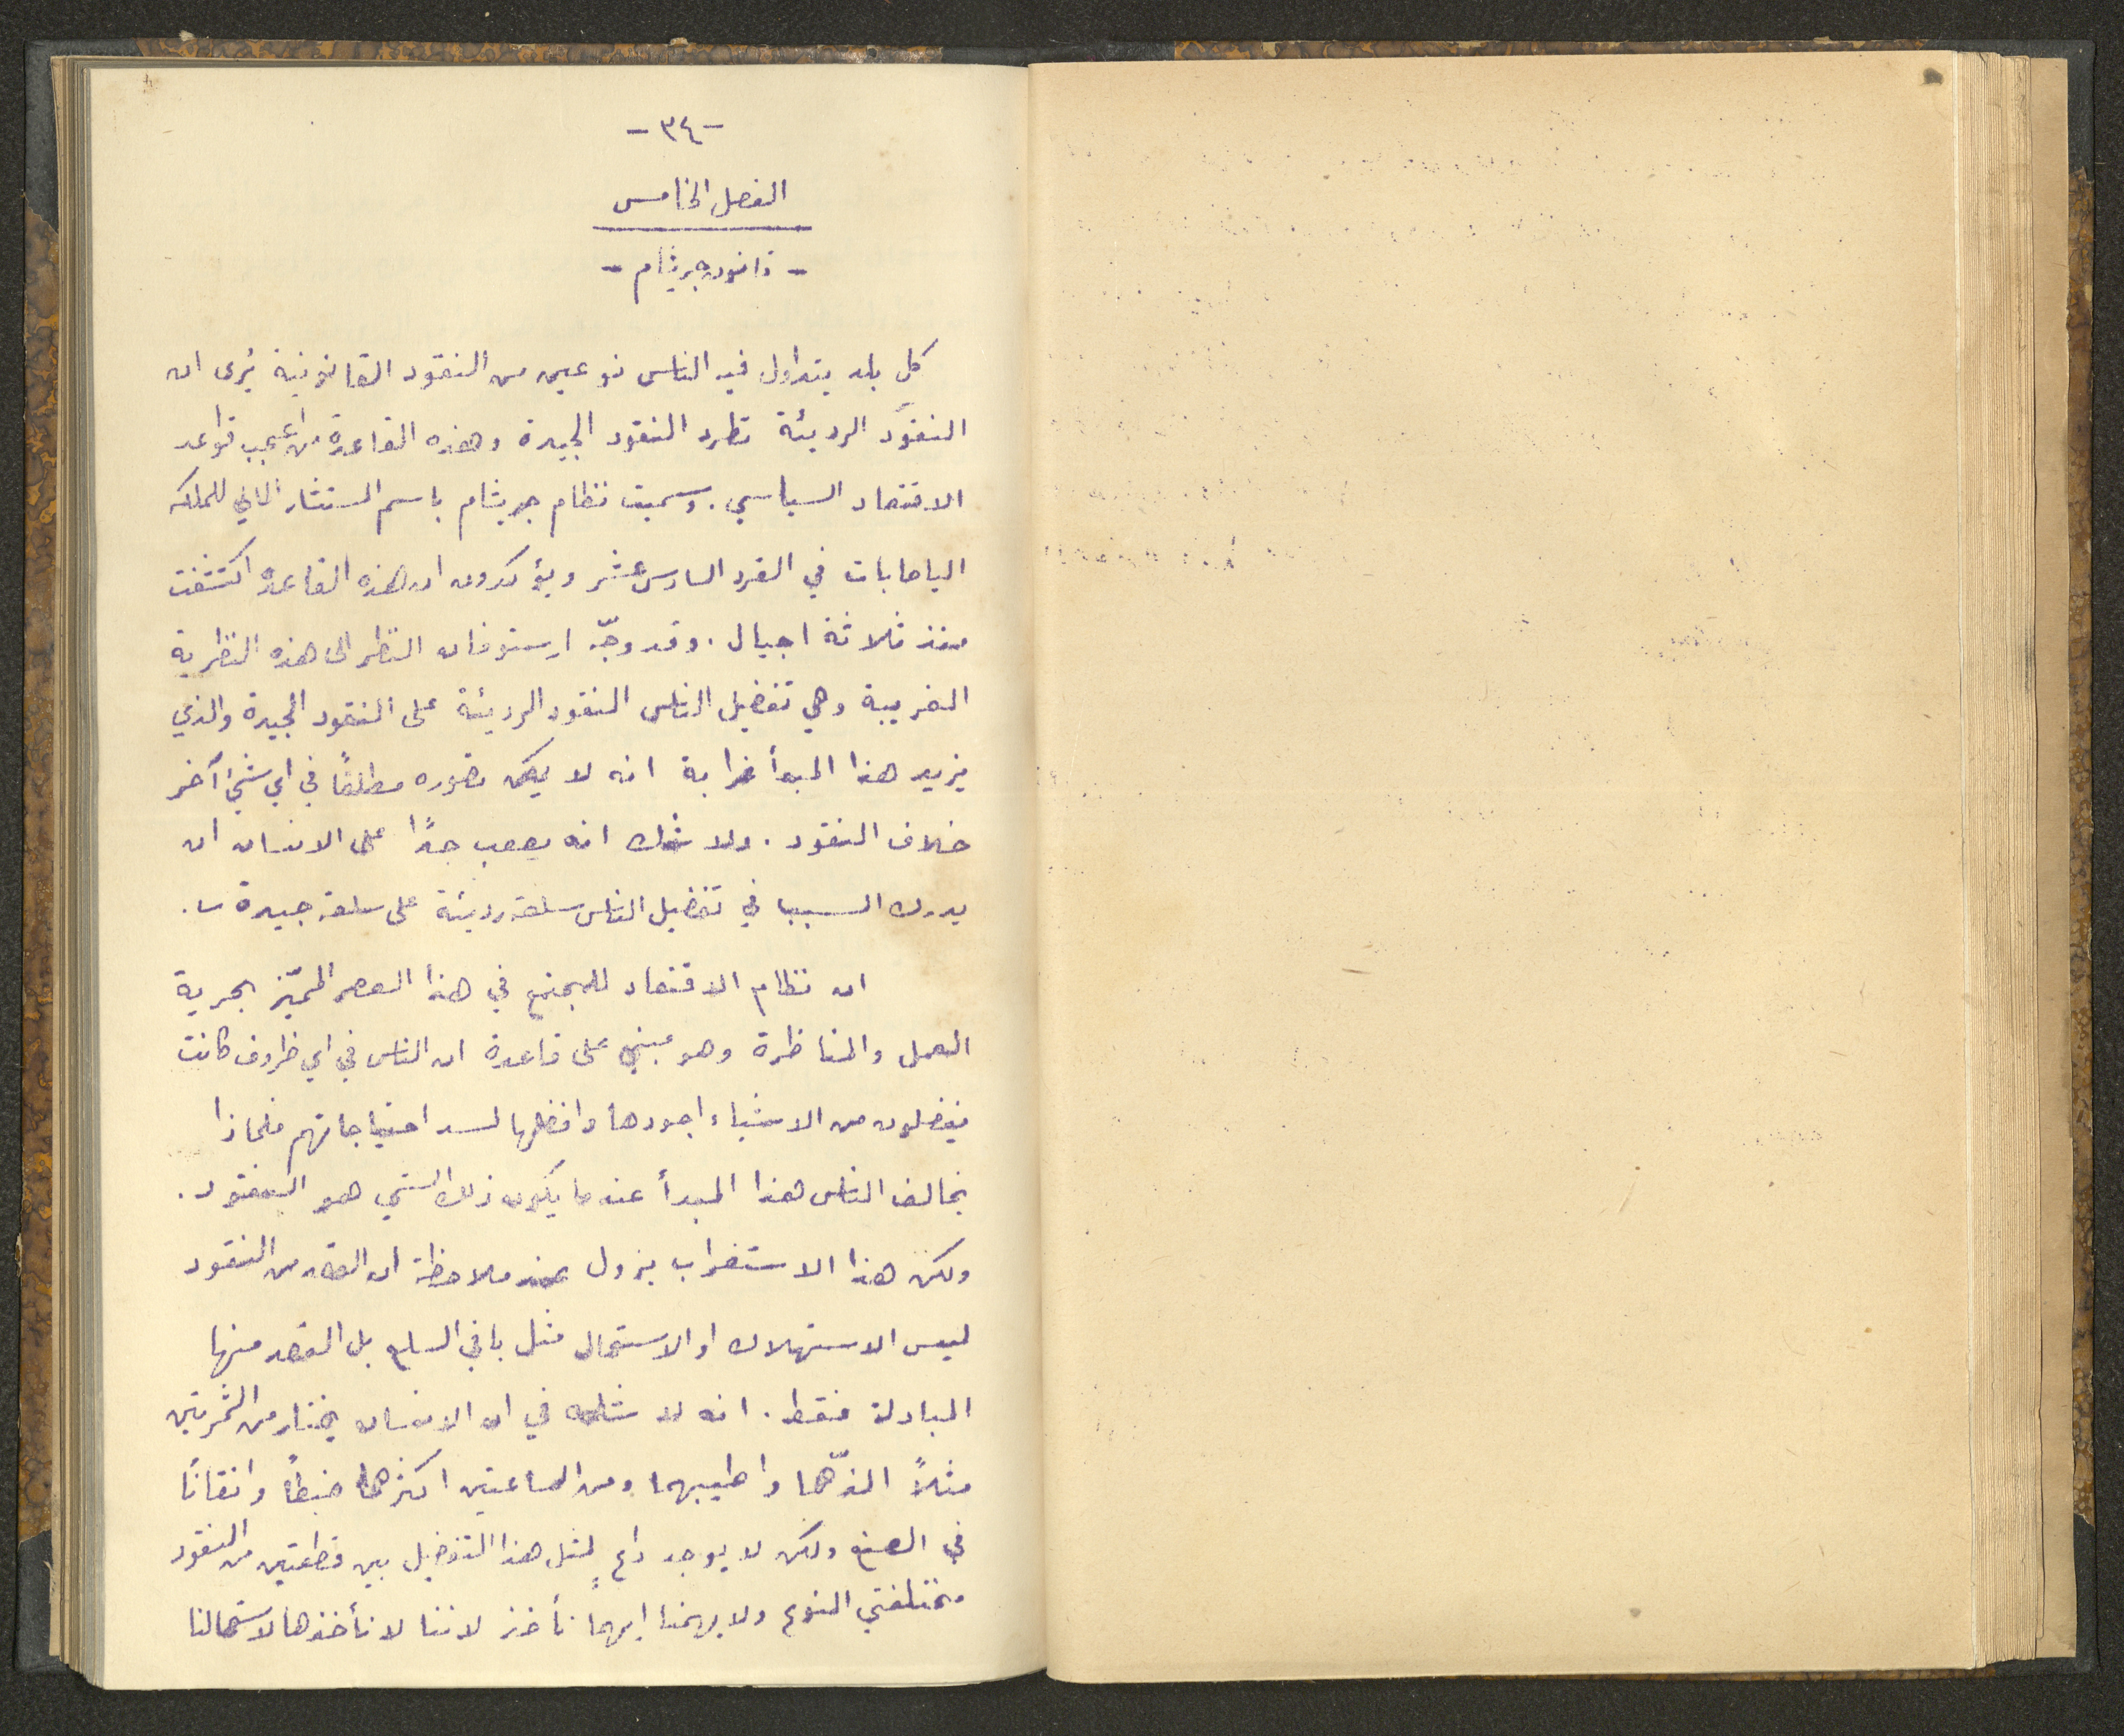 -٣٤-
الفصل الخامس
- قانون جريشام -
كل بلد يتداول فيه الناس نوعين من النقود القانونية يُرى ان
النقود الرديئة تطرد النقود الجيدة وهذه القاعدة من اعجب قواعد
الاقتصاد السياسي. وسميت نظام جريشام باسم المستشار المالي للملكه
اليصابات في القرن السادس عشر ويؤكدون ان هذه القاعدة اكتشفت
منذ ثلاثة اجيال. وقد وجّه ارستوفان النظر الى هذه النظرية
الغريبة وهي تفضيل الناس النقود الرديئة على النقود الجيدة والذي
يزيد هذا المبدأ غرابة انه لا يمكن تصوره مطلقًا في اي شيء آخر
خلاف النقود. ولا شك انه يصعب جدًا على الانسان ان
يدرك السبب في تفضيل الناس سلعة رديئة على سلعة جيدة.
ان نظام الاقتصاد للمجتمع في هذا العصر المميّز بحرية
العمل والمناظرة وهو مبني على قاعدة ان الناس في اي ظروف كانت
يفضلون من الاشياء اجودها وافضلها لسد احتياجاتهم فلماذا
يخالف الناس هذا المبدأ عندما يكون ذلك الشي هو النقود.
ولكن هذا الاستغراب يزول عند ملاحظة ان القصد من النقود
ليس الاستهلاك او الاستعمال مثل باقي السلع بل القصد منها
المبادلة فقط. انه لا شك في ان الانسان يختار من الثمرتين
مثلاً الذّهما واطيبهما ومن الساعتين اكثرهما ضبطاً واتقانًا
في الصنع ولكن لا يوجد داعٍ لمثل هذا التفضيل بين قطعتين من النقود
مختلفتي النوع ولا يهمنا ايهما نأخذ لاننا لا نأخذها لاستعمالنا